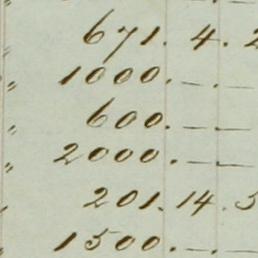 " 671. 4. 2
" 1000. — . —
" 600. — . —
" 2000. — . —
" 201. 14. 5
" 1500. — . —